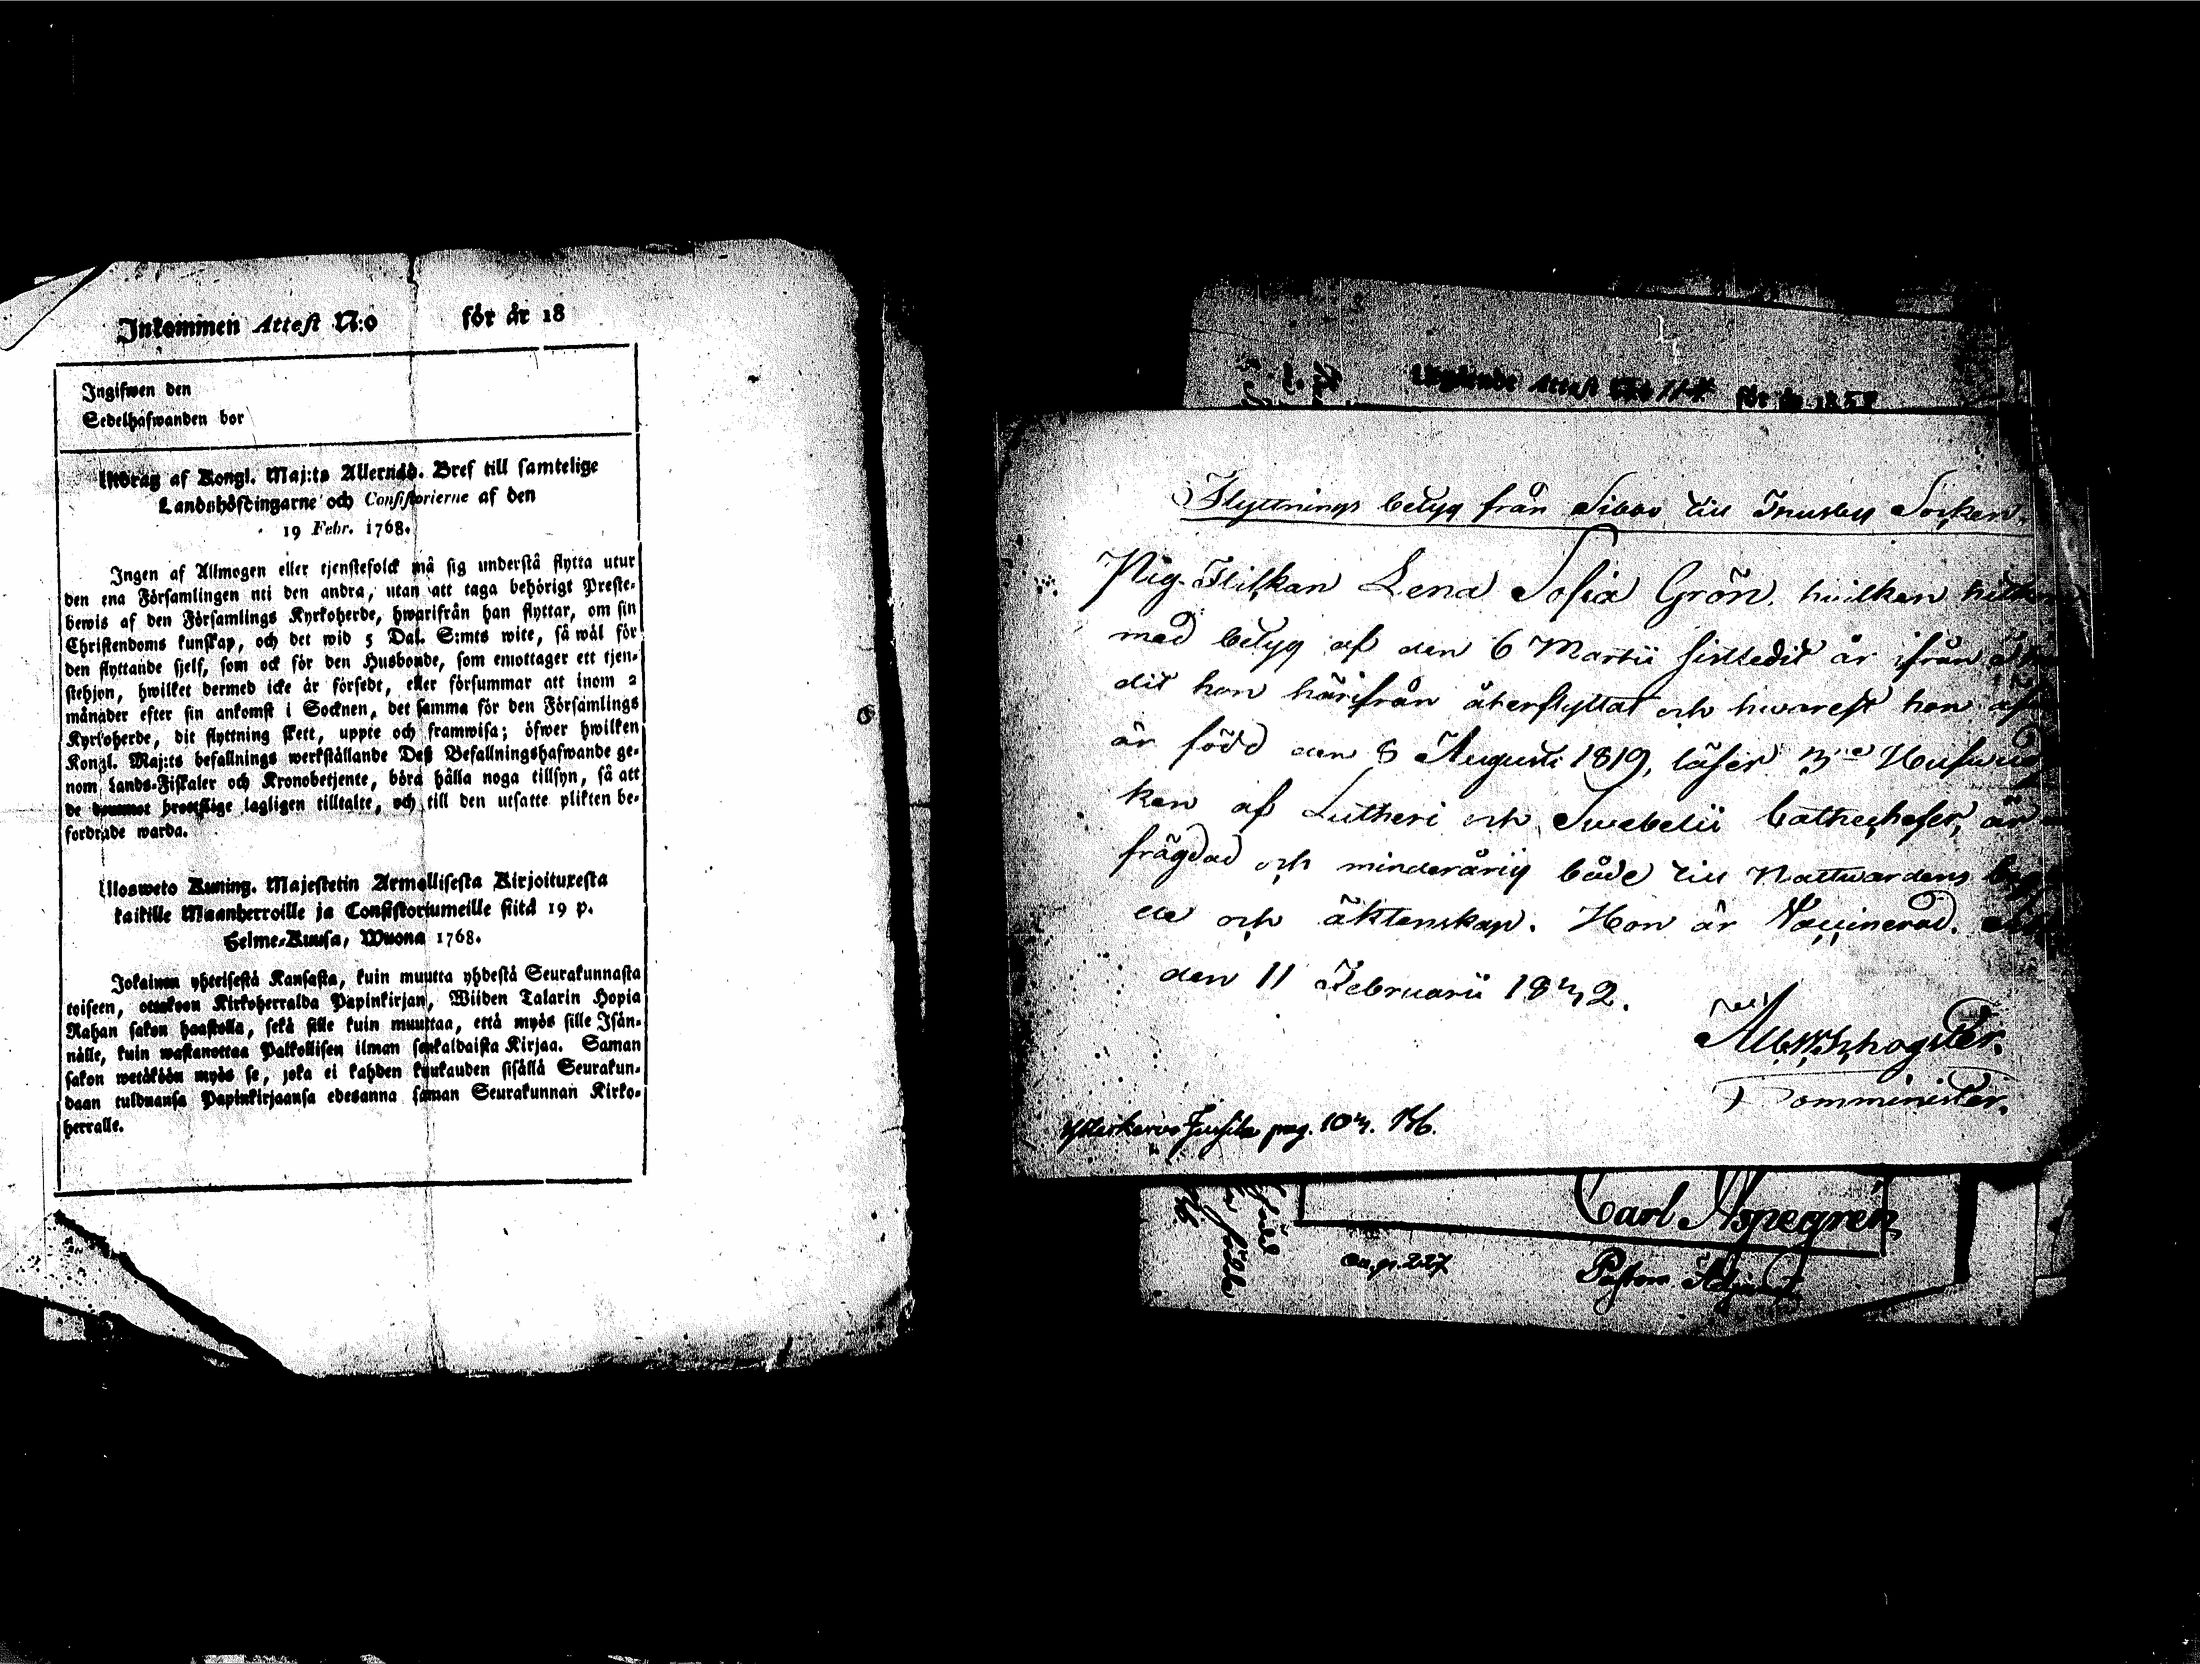 Inkommen Attest N:o för år 18
Ingifwen den
Sedelhafwanden bor
Utdrag af Kongl. Maj:ts Allernåd. Bref till samtelige
Landshöfdingarne och Consistorierne af den
19 Febr. 1768.
Ingen af Allmogen eller tjenstefolck må sig understå flytta utur
den ena Församlingen uti den andra, utan att taga behörigt Preste-
bewis af den Församlings Kyrkoherde, hwarifrån han flyttar, om sin
Christendoms kunskap, och det wid 5 Dal. S:mts wite, så wål för
den flyttande sjelf, som ock för den Husbonde, som emottager ett tjen-
stehjon, hwilket dermed icke är försedt, eller försummar att inom 2
månader efter sin ankomst i Socknen, det samma för den Församlings
Kyrkoherde, dit flyttning skett, uppte och framwisa; öfwer hwilken
Kongl. Maj:ts befallnings werkställande Deß Befallningshafwande ge-
nom Lands-Fiskaler och Kronobetjente, böra hålla noga tillsyn, så att
de lagligen tilltalte, och till den utsatte plikten be-
fordrade warda.
Ulosweto Kuning. Majestetin Armollisesta Kirjoituxesta
kaikille Maanherroille ja Consistoriumeille siitå 19 p.
Helme-Kuusa, Wuona 1768.
Jokainen yhteisestå Kansasta, kuin muutta yhdestå Seurakunnasta
toiseen, ottakoon Kirkoherralda Papinkirjan, Wiiden Talarin Hopia
Rahan sakon haastolla, sekå sille kuin muuttaa, ettå myös sille Isån-
nålle, kuin wastanottaa Palkollisen ilman senkaldaista Kirjaa. Saman
sakon wetåköön myös se, joka ei kahden kuukauden sisållå Seurakun-
daan tulduansa Papinkirjaansa edesanna saman Seurakunnan Kirko-
herralle.
Attest för år 185
Flyttnings betyg från Sibbo till Tnusby Socken.
Pig-Flickan Lena Sofia Grön, hvilken
med betyg af den 6 Martii sistledit år ifrån
dit hon härifrån återflyttat och hvarest hon
är född den 8 Augusti 1819, läser
ken af Lutheri och Swebelii Cathecheser, är
frägdad och minderårig både till Nattwardens
de och äktenskap. Hon är Vaccinerad.
den 11 Februarii 1832.
Comminister.
pag. 103.
Carl Aspegren
pag. 227
Pastors Adjunct.